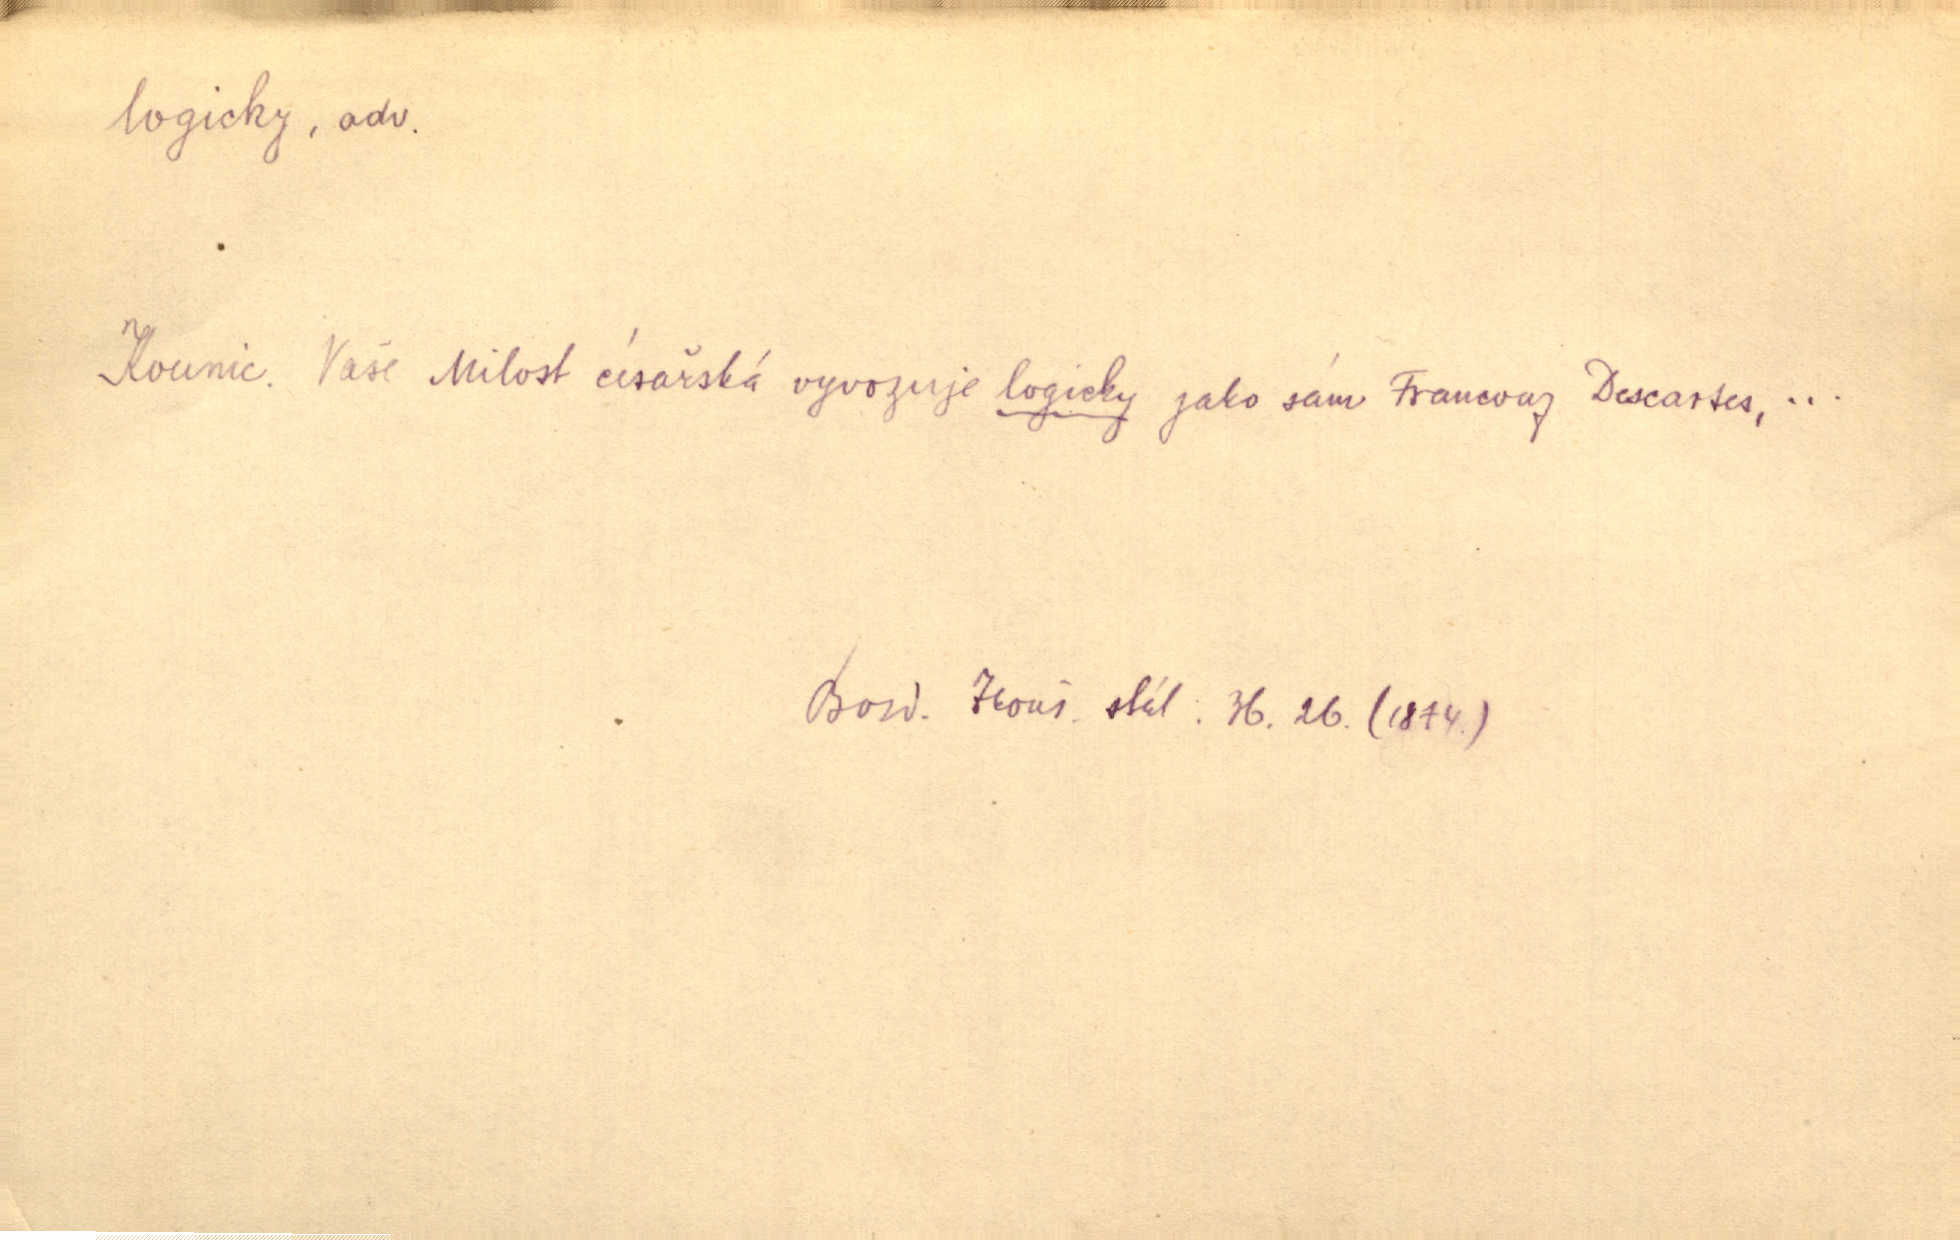 logicky, adv.
Kounic. Vaše Milost císařská vyvozuje logicky jako sám Francouz Descartes, ...
Bozd. Zkouš. stát. 36. 26. (1874.)